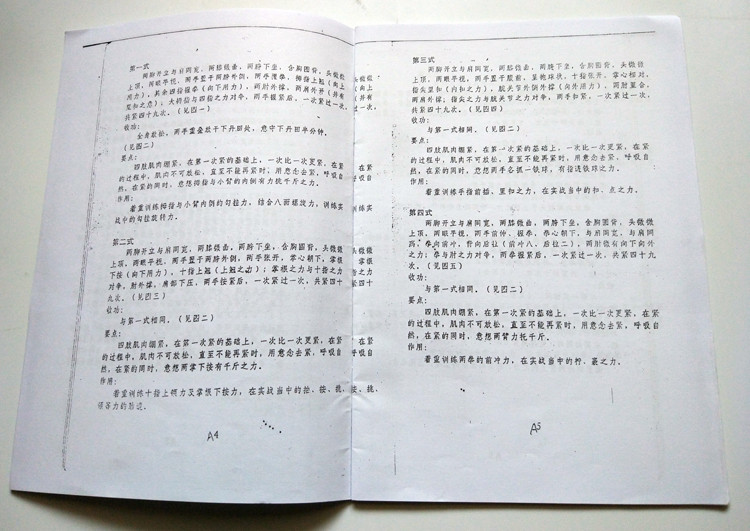 第一式
两脚开立与肩同宽，两膝微曲，两胯下坐，含胸圆背，头微微
上顶，两眼平视，两手置于两胯外侧，两手握拳，拇指上翘（向上
用力），其余四指握拳（向下用力），两肘外撑，两肩外开（并有
里扣之意）；大拇指与四指之力对争，两手握紧后，一次紧过一次，
共紧四十九次。（见图一）
收功：
全身放松，两手重叠放于下丹田处，意守下丹田半分钟。
（见图二）
要点：
四肢肌肉绷紧，在第一次紧的基础上，一次比一次更紧，在紧
的过程中，肌肉不可放松，直至不能再紧时，用意念去紧，呼吸自
然，在紧的同时，意想拇指与小臂的内侧有力托千斤之力。
作用：
着重训练拇指与小臂内侧的勾拉力，结合八面螺旋力，训练实
战中的勾拉旋转力。
第二式
两脚开立与肩同宽，两膝微曲，两胯下坐，含胸圆背，头微微
上顶，两眼平视，两手置于两胯外侧，两手张开，掌心朝下，掌根
下按（向下用力），十指上翘（上翘之力）；掌根之力与十指之力
对争，肘外撑，肩部下压，两手按紧后，一次紧过一次，共紧四十
九次。（见图三）
收功：
与第一式相同。（见图二）
要点：
四肢肌肉绷紧，在第一次紧的基础上，一次比一次更紧，在紧
的过程中，肌肉不可放松，直至不能再紧时，用意念去紧，呼吸自
然，在紧的同时，意想两掌下按有千斤之力。
作用：
着重训练十指上领力及掌根下按力，在实战当中的拍、按、
A4
第三式
两脚开立与肩同宽，两膝微曲，两胯下坐，含胸圆背，头微微
上顶，两眼平视，两手置于腹前，呈抱球状，十指张开，掌心相对，
指尖里扣（内扣之力），腕关节外侧外撑（向外用力），两肘里合，
两肩外撑；指尖之力与腕关节之力对争，两手扣紧，一次紧过一次，
共紧四十九次。（见图四）
收功：
与第一式相同。（见图二）
要点：
四肢肌肉绷紧，在第一次紧的基础上，一次比一次更紧，在紧
的过程中，肌肉不可放松，直至不能再紧时，用意念去紧，呼吸自
然，在紧的同时，意想两手各抓一铁球，有指透铁球之力。
作用：
着重训练手指前插、里扣之力，在实战当中的扣、点之力。
第四式
两脚开立与肩同宽，两膝微曲，两胯下坐，含胸圆背，头微微
上顶，两眼平视，两手前伸、握拳，拳心朝下，与肩同宽，与肩同
高，拳向前冲，背向后拉（前冲八、后拉二），两肘微有向下向外
之力；拳与肘之力对争，两拳握紧后，一次紧过一次，共紧四十九
次。（见图五）
收功：
与第一式相同。（见图二）
要点：
四肢肌肉绷紧，在第一次紧的基础上，一次比一次更紧，在紧
的过程中，肌肉不可放松，直至不能再紧时，用意念去紧，呼吸自
然，在紧的同时，意想两臂力托千斤。
作用：
着重训练两拳的前冲力，在实战当中的
A5